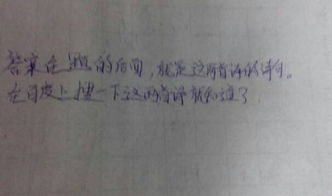 答案在题的后面，就是这两首诗的诗句。
在百度上搜一下这两首诗就知道了